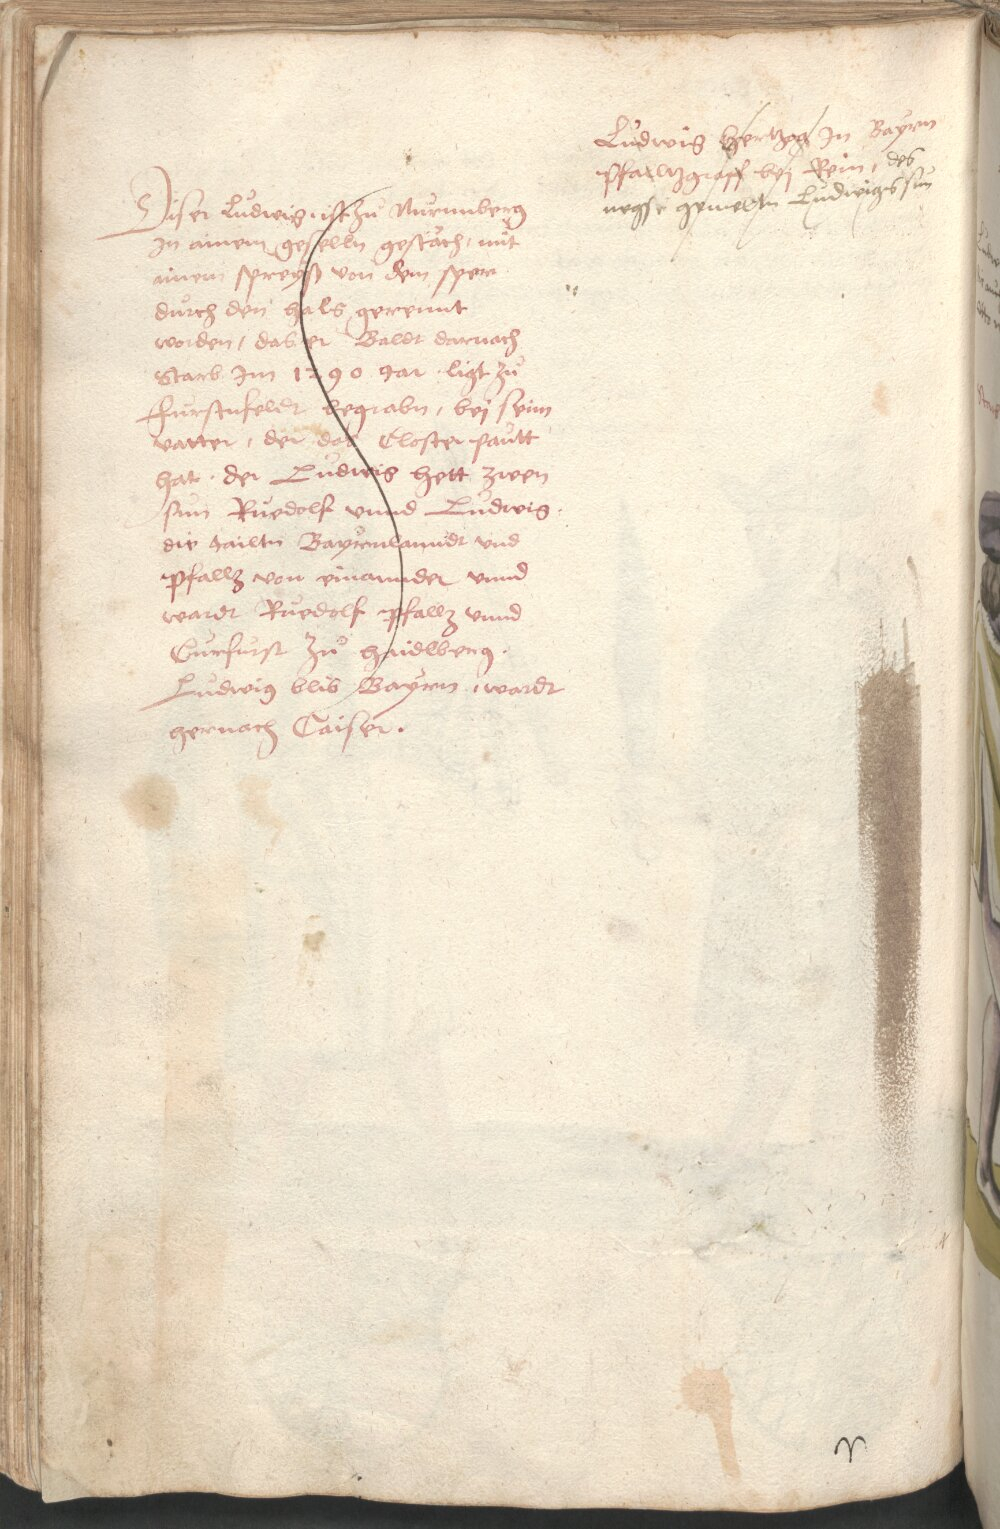 Diser Ludwig ist zů Nürmberg
in ainem geselln gestäch, mit
ainem spreyß von dem sper
durch den hals gerennt
worden, das er Baldt darnach
Starb Im 1290 Jar. ligt zů
Fürstnfeldt begrabn, bej seim
vatter, der das Closter paůtt
hat. der Ludwig hett zwen
sün Růedolf vnnd Ludwig.
die tailtn Bayrnlanndt vnd
Pfallz von einannder vnnd
wardt Růedolf pfallz vnnd
Curfürst zů haidlberg.
Ludwig blib Bayrn, wardt
hernach Caiser.
Ludwig hertzog In Bayrn
Pfaltzgraff bej Rein, des
negst gemeltn Ludwigs sun